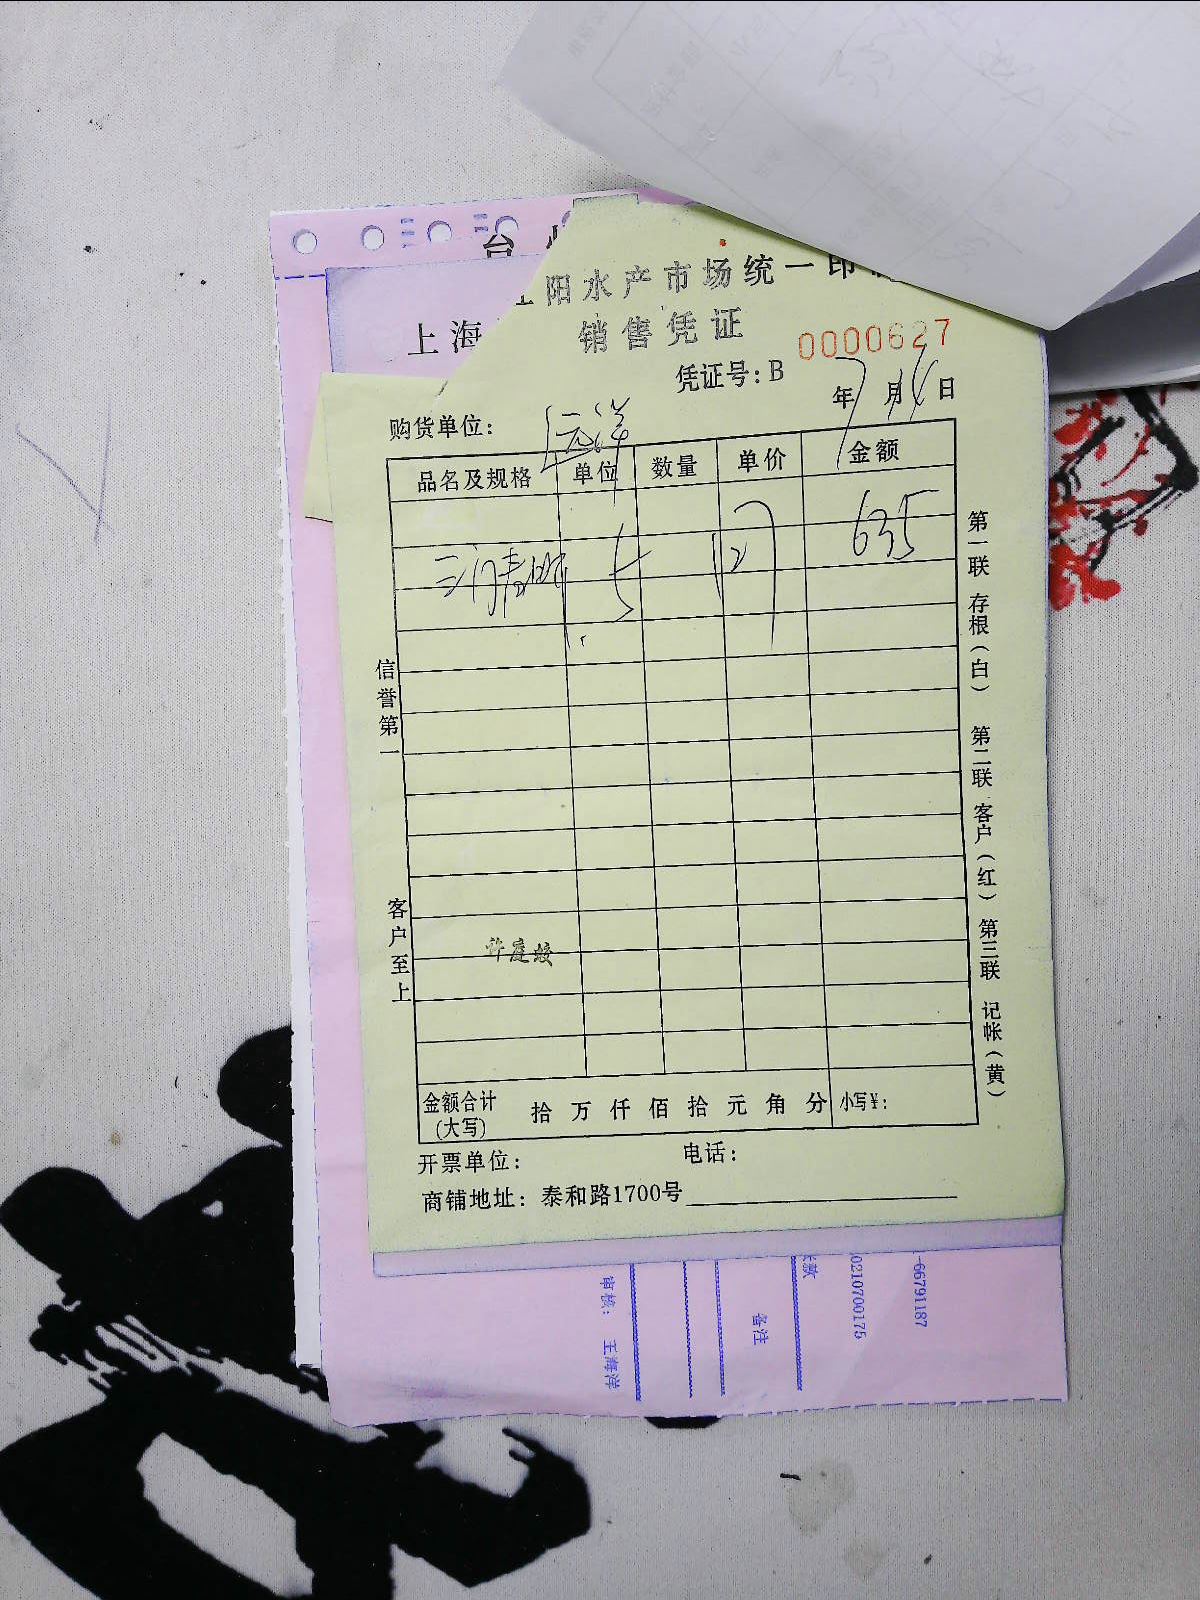 江阳水产市场统一印
上海
销售凭证
0000627
凭证号：B
年7月14日
购货单位：远洋
品名及规格 单位 数量 单价 金额
三门青蟹 5 127 635
信誉第一
客户至上
第一联 存根（白） 第二联 客户（红） 第三联 记帐（黄）
许庭姣
金额合计（大写） 拾 万 仟 佰 拾 元 角 分 小写¥：
开票单位： 电话：
商铺地址：泰和路1700号
审核： 王海洋
备注
0210700175
-66791187